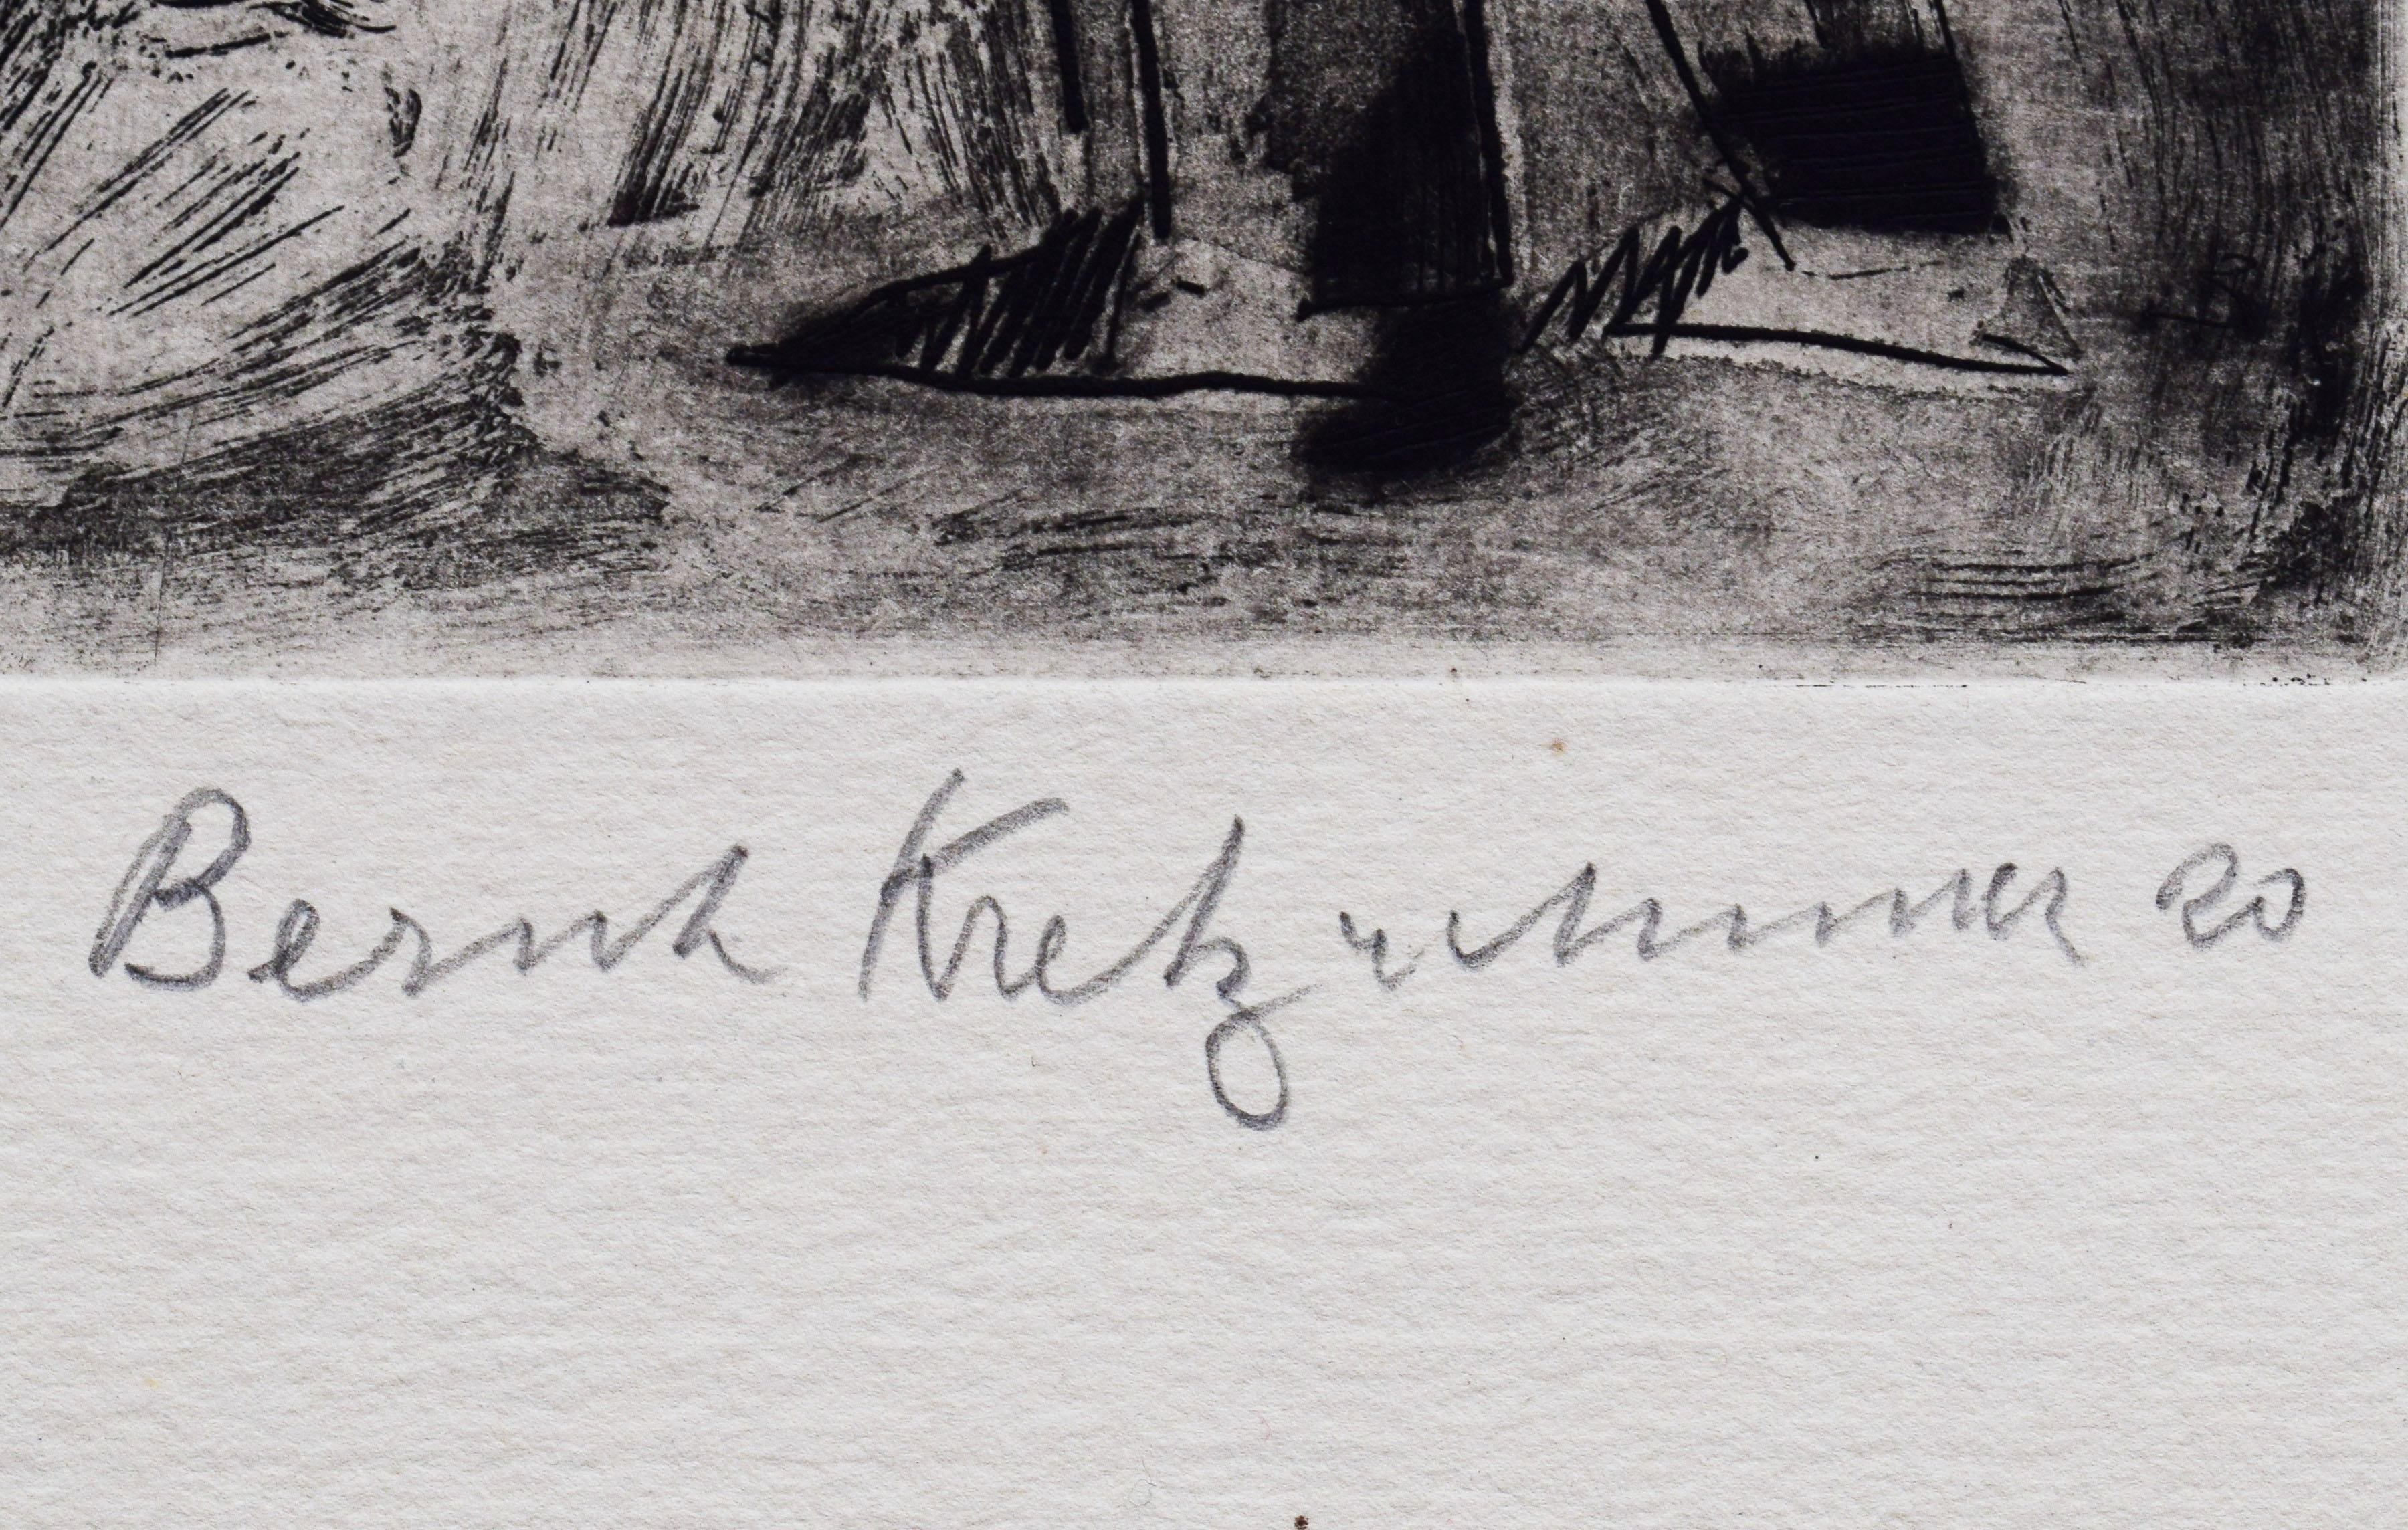 Bernh Kretzschmar 20